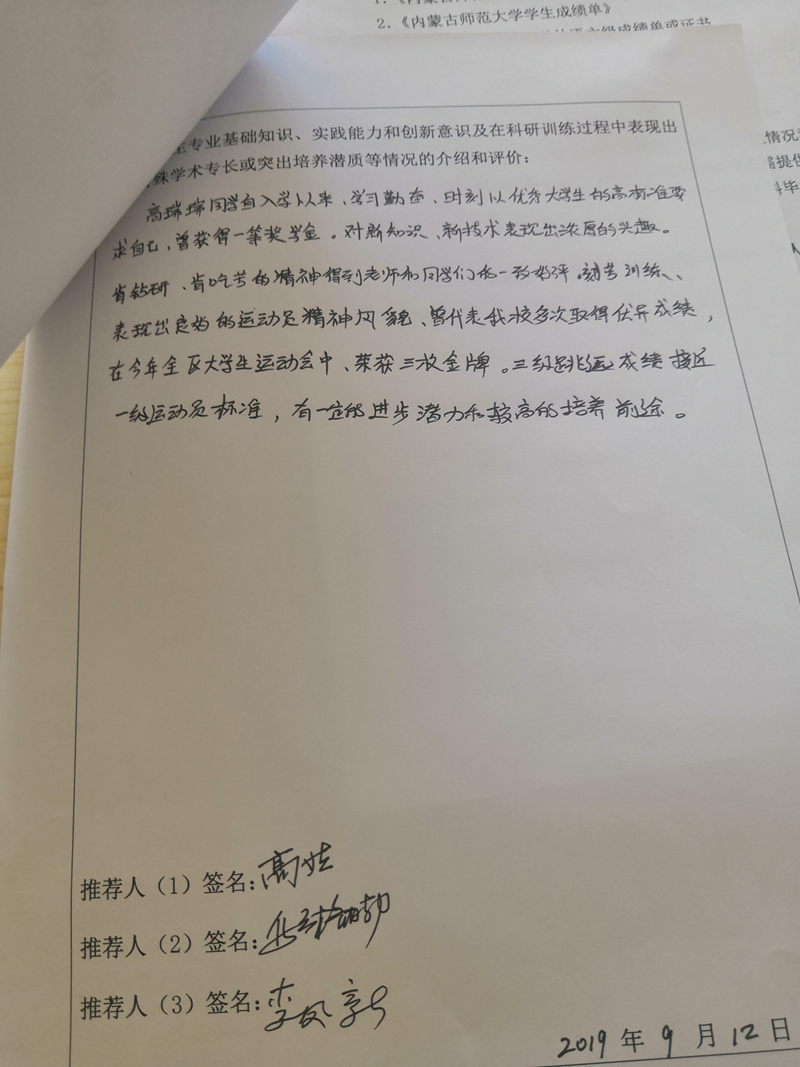 2.《内蒙古师范大学学生成绩单》
级成绩单或证书
情况
提供
科毕
专业基础知识、实践能力和创新意识及在科研训练过程中表现出
殊学术专长或突出培养潜质等情况的介绍和评价：
高瑞瑞同学自入学以来、学习勤奋、时刻以优秀大学生的高标准要
求自己，曾获得一等奖学金。对新知识、新技术表现出浓厚的兴趣。
肯钻研、肯吃苦的精神得到老师和同学们的一致好评。刻苦训练、
表现出良好的运动员精神风貌、曾代表我校多次取得优异成绩，
在今年全区大学生运动会中、荣获三枚金牌。三级跳远成绩接近
一级运动员标准，有一定的进步潜力和较高的培养前途。
推荐人（1）签名：高
推荐人（2）签名：
推荐人（3）签名：李凤
2019 年 9 月 12 日